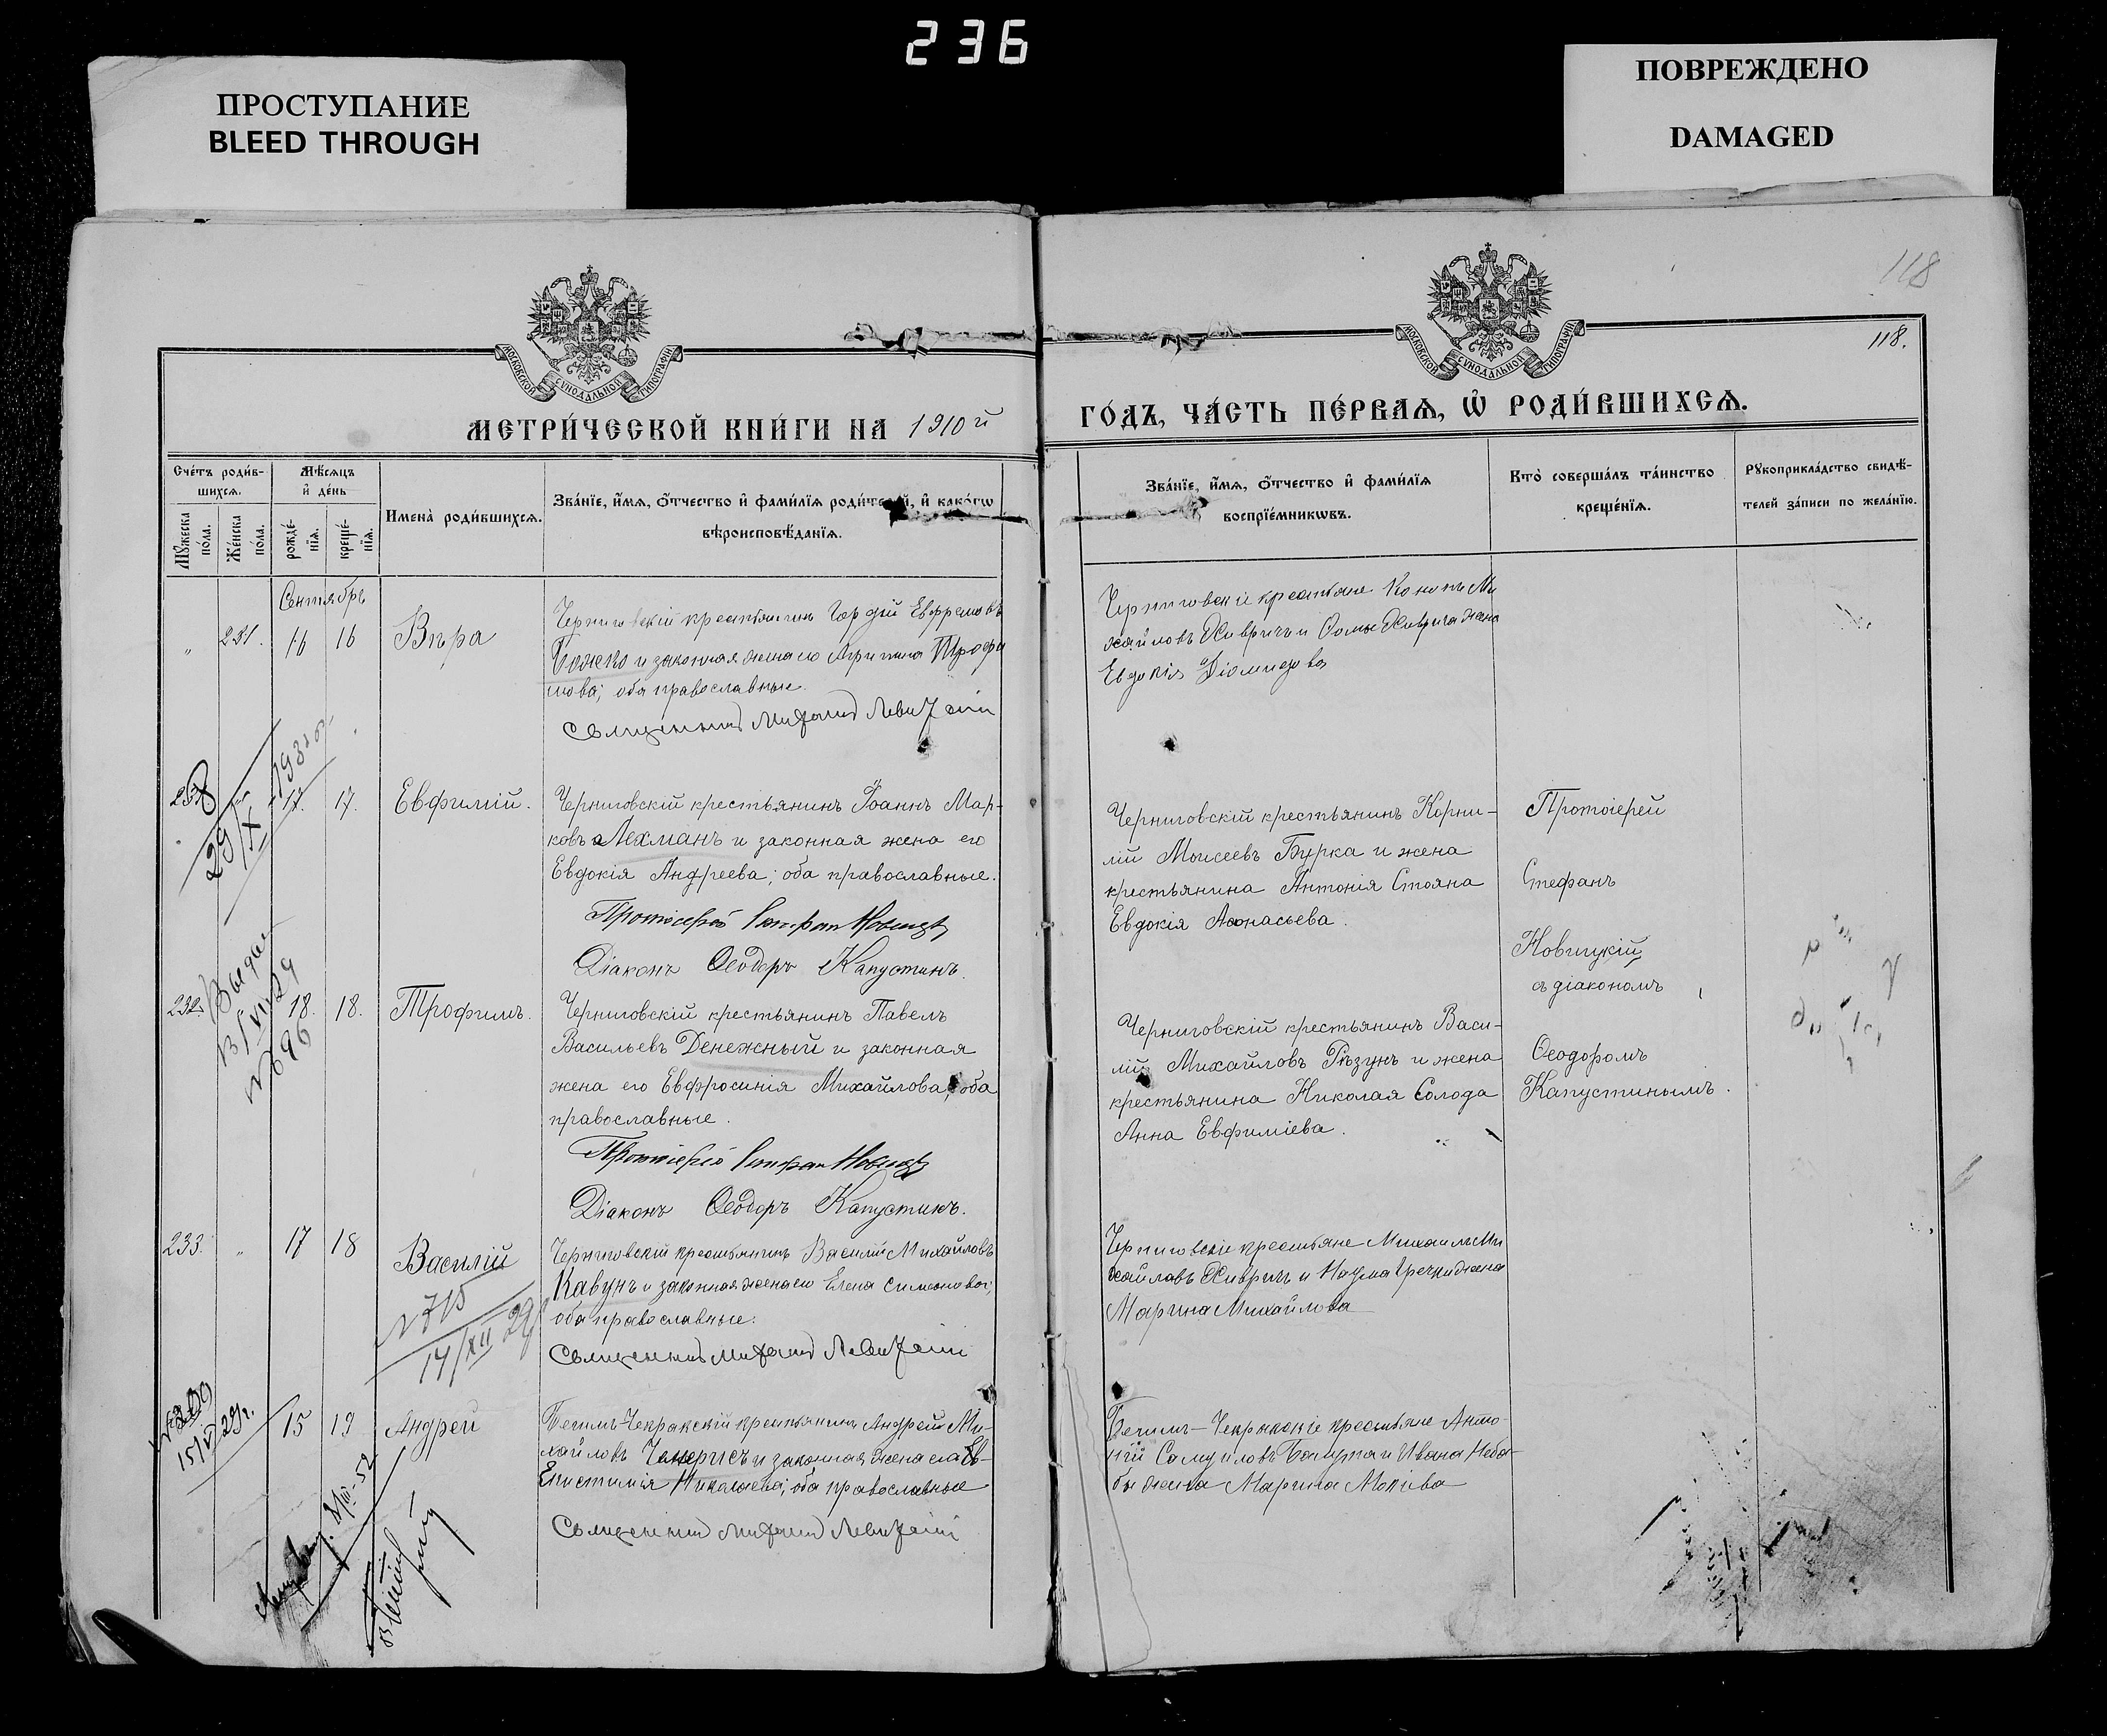 236
ПРОСТУПАНИЕ
BLEED THROUGH
ПОВРЕЖДЕНО
DAMAGED
118
118.
МОСКОВСКОЙ СѴНОДАЛЬНОЙ ТИПОГРАФІИ
МОСКОВСКОЙ СѴНОДАЛЬНОЙ ТИПОГРАФІИ
МЕТРИ́ЧЕСКОЙ КНИ́ГИ НА 1910й
ГО́ДЪ, ЧА́СТЬ ПЕ́РВАѦ, Ѡ҆ РОДИ́ВШИХСѦ.
Сче́тъ роди́в-
шихсѧ.
Мꙋ́жеска по́ла.
Же́нска по́ла.
Мѣ́сѧцъ
и҆ де́нь
рожде́-
нїѧ.
креще́-
нїѧ.
Имена̀ роди́вшихсѧ.
Зва́нїе, и҆́мѧ, ѻ҆́тчество и҆ фами́лїѧ роди́телей, и҆ како́гѡ
вѣроисповѣ́данїѧ.
Зва́нїе, и҆́мѧ, ѻ҆́тчество и҆ фами́лїѧ
воспрїе́мникѡвъ.
Кто̀ соверша́лъ та́инство
креще́нїѧ.
Рꙋкоприкла́дство свидѣ́-
телей за́писи по жела́нїю.
Сентябрь
" 231. 16 16 Вѣра
Черниговскій крестьянинъ Гордій Евфремовъ
Божко и законная жена его Агрипина Трофи
мова; оба православные.
Священникъ Михаилъ Левитскій
Черниговскіе крестьяне Кононъ Ми
хайловъ Хивричъ и Ѳомы Хиврича жена
Евдокія Діомидова
29/X 193
17. 17. Евфимій.
Черниговскій крестьянинъ Іоаннъ Мар-
ковъ Лехманъ и законная жена его
Евдокія Андреева; оба православные.
Протоіерей Стефанъ Новицкій
Діаконъ Ѳеодоръ Капустинъ.
Черниговскій крестьянинъ Корни-
лій Моисеевъ Бурка и жена
крестьянина Антонія Стояна
Евдокія Аѳонасьева.
Протоіерей
Стефанъ
Новицкій
съ діакономъ
Ѳеодоромъ
Капустинымъ.
Выдан
13/VI 29
№ 696
232. 18. 18. Трофимъ.
Черниговскій крестьянинъ Павелъ
Васильевъ Денежный и законная
жена его Евфросинія Михайлова; оба
православные.
Протоіерей Стефанъ Новицкій
Діаконъ Ѳеодоръ Капустинъ.
Черниговскій крестьянинъ Васи-
лій Михайловъ Рѣзунъ и жена
крестьянина Николая Солода
Анна Евфиміева.
233. " 17 18 Василій
№ 715
14/XII 29
Черниговскій крестьянинъ Василій Михайловъ
Кавунъ и законная жена его Елена Симеонова;
оба православные.
Священникъ Михаилъ Левитскій
Черниговскіе крестьяне Михаилъ Ми
хайловъ Хивричъ и Наума Гречки жена
Марина Михайлова
15/V 29г.
15 19 Андрей
Бегимъ-Чекракскій крестьянинъ Андрей Ми-
хайловъ и законная жена его
Епистимія Николаева; оба православные
Священникъ Михаилъ Левитскій
Бегимъ-Чекракскіе крестьяне Анто-
ній Самуиловъ и Ивана Неба-
бы жена Марина Мокіева